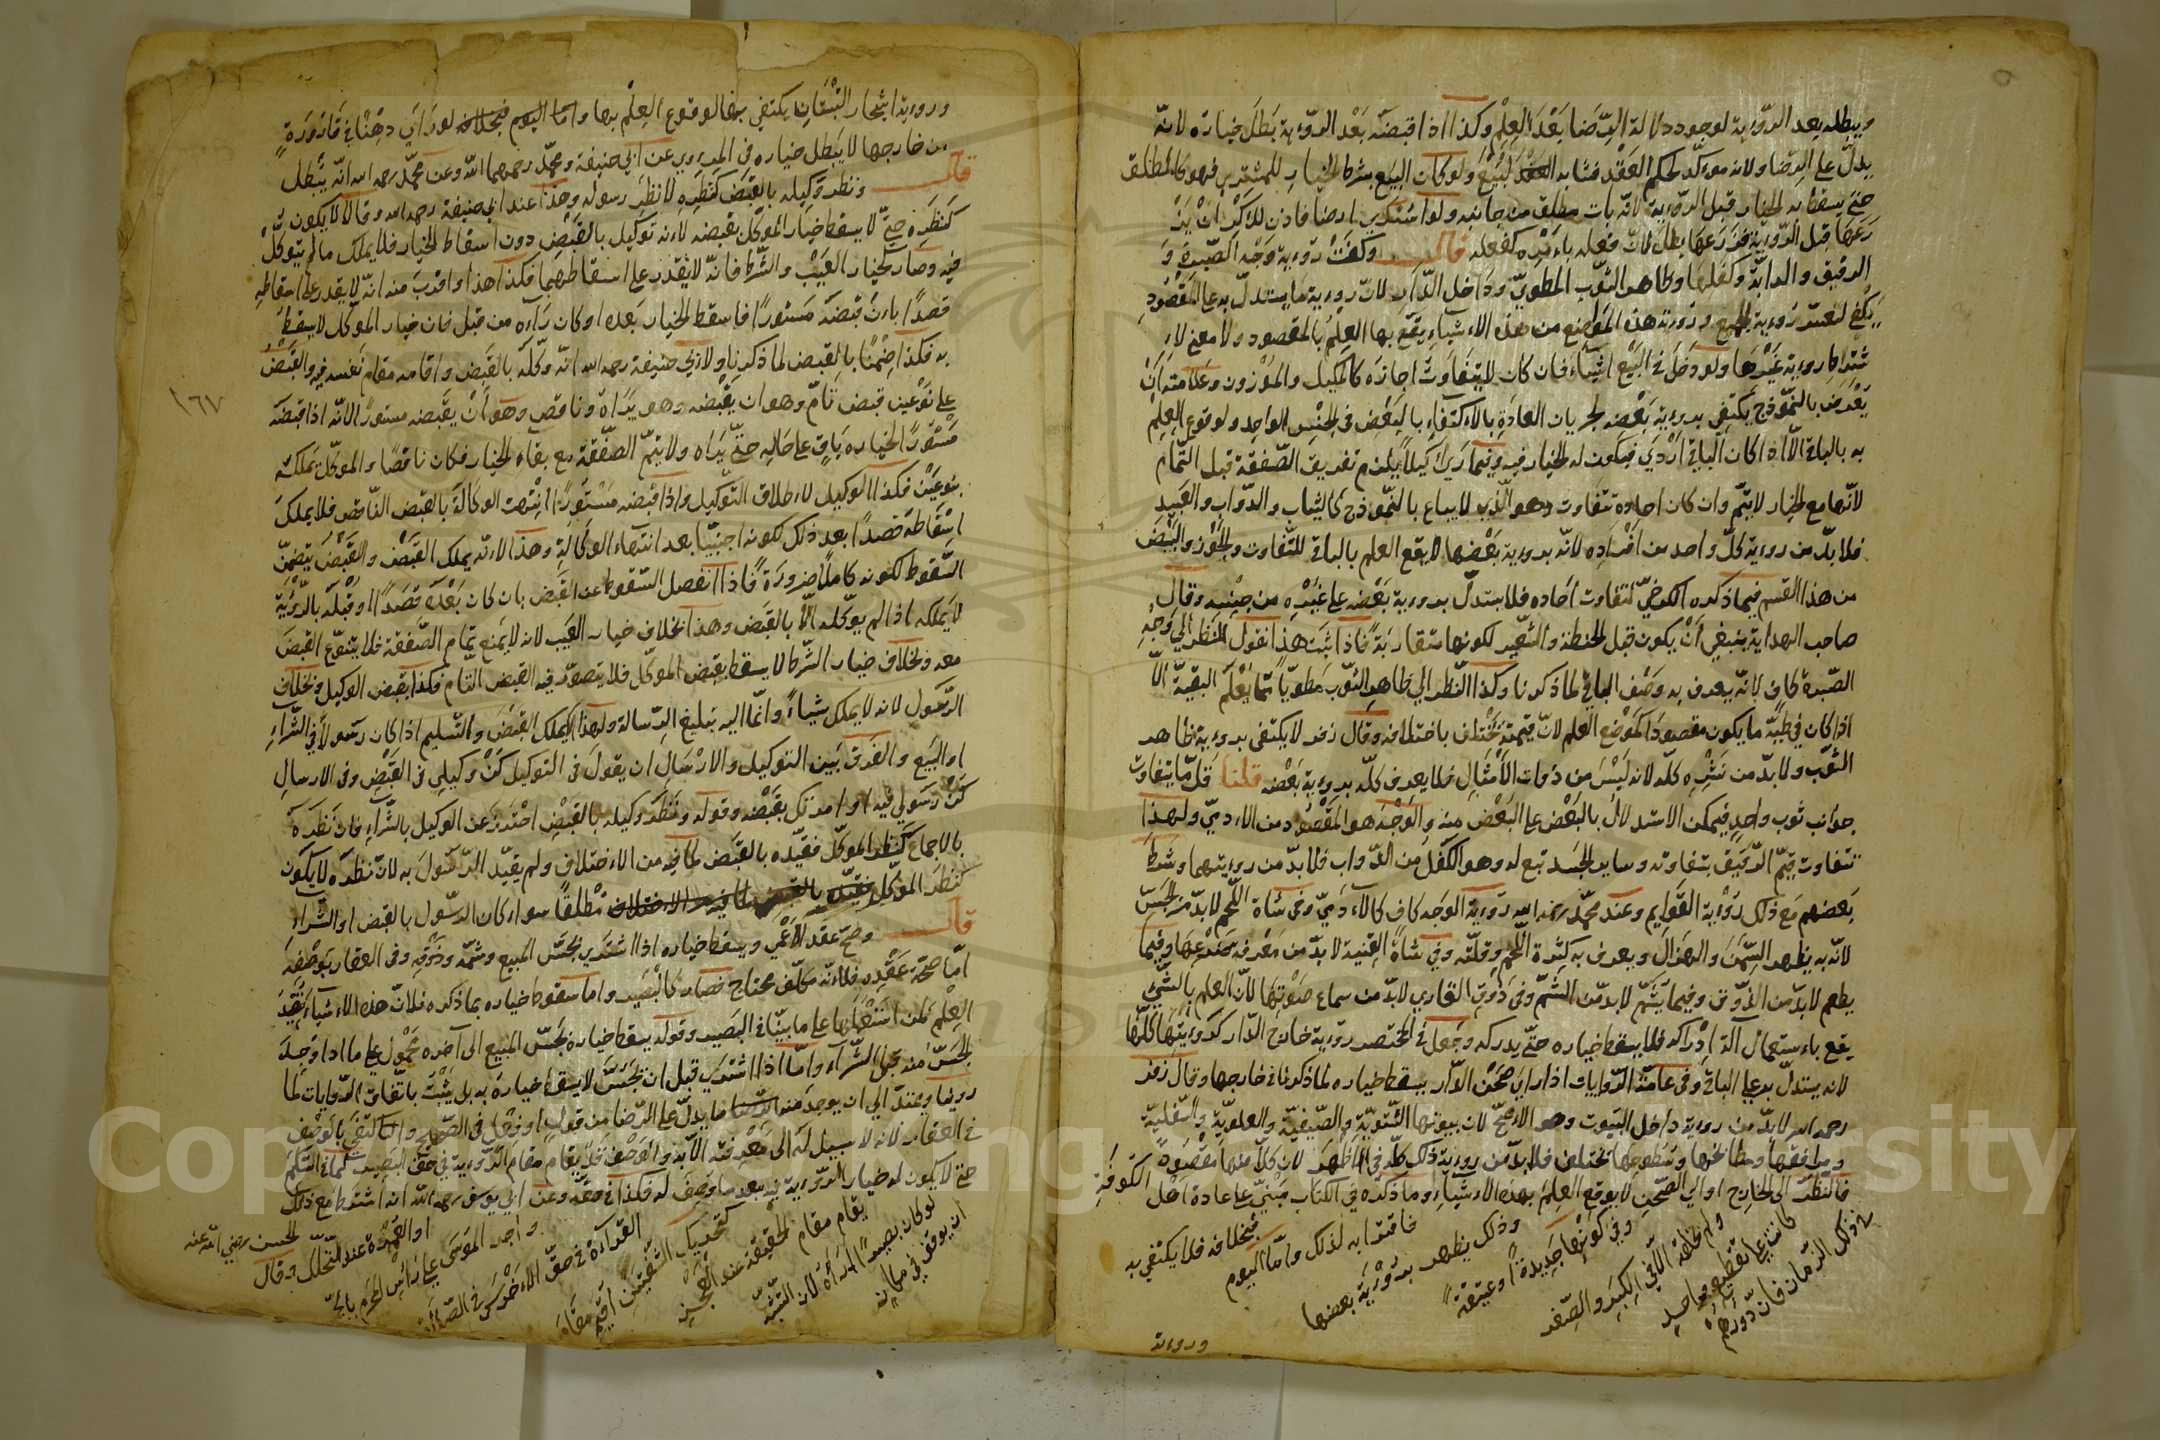 ويبطله بعد الرؤية لوجود دلالة الرضا بعد العلم وكذا اذا قبضه بعد الرؤية بطل خياره لانه
يدل على الرضا ولانه مؤكد لحكم العقد فشابه العقد ولو كان البيع بشرط الخيار للمشتري فهو كالمطلق
حتى يسقط به الخيار قبل الرؤية لانه بات مطلق من جانبه ولو اشترى ارضا فاذن للاكار ان يز
رعها قبل الرؤية فزرعها بطل لان فعله بامره كفعله قال وكفت رؤية وجه الصبرة و
الرقيق والدابة وكفلها وظاهر الثوب المطوي وداخل الدار لان رؤية ما يستدل به على المقصود
يكفي لتعسر رؤية الجميع ورؤية هذه المواضع من هذه الاشياء يقع بها العلم بالمقصود ولا معنى لا
شتراط رؤية غيرها ولو دخل في البيع اشياء فان كان لا يتفاوت احاده كالمكيل والموزون وعلامته ان
يعرض بالنموذج يكتفي برؤية بعضه لجريان العادة بالاكتفاء بالبعض في الجنس الواحد ولوقوع العلم
به بالباقي الا اذا كان الباقي اردى فيكون له الخيار فيه وفيما رأى كيلا يلزم تفريق الصفقة قبل التمام
لانها مع الخيار لا يتم وان كان احاده تتفاوت وهو الذي لا يباع بالنموذج كالثياب والدواب والعبيد
فلا بد من رؤية كل واحد من افراده لانه برؤية بعضها لا يقع العلم بالباقي للتفاوت والجوز والبيض
من هذا القسم فيما ذكره الكرخي لتفاوت احاده فلا يستدل برؤية بعضه على غيره من جنسه وقال
صاحب الهداية ينبغي ان يكون قبل الحنطة والشعير لكونها متقاربة فاذا ثبت هذا نقول النظر الى وجه
الصبرة كاف لانه يعرف به وصف الباقي لما ذكرنا وكذا النظر الى ظاهر الثوب مطويا مما يعلم البقية الا
اذا كان في طيه ما يكون مقصودا كموضع العلم لان قيمته تختلف باختلافه وقال زفر لا يكتفى برؤية ظاهر
الثوب ولا بد من نشره كله لانه ليس من ذوات الامثال فلا يعرف كله برؤية بعضه قلنا قل ما يتفاوت
جوانب ثوب واحد فيمكن الاستدلال بالبعض على البعض منه والوجه هو المقصود من الادمي ولهذا
تتفاوت قيم الرقيق بتفاوته وسائر الجسد تبع له وهو الكفل من الدواب فلا بد من رؤيتهما وشرط
بعضهم مع ذلك رؤية القوايم وعند محمد رحمه الله رؤية الوجه كاف كالادمي وفي شاة اللحم لا بد من الجس
لانه به يظهر السمن والهزال ويعرف به كثرة اللحم وقلته وفي شاة القنية لا بد من معرفة ضرعها وفيما
يطعم لا بد من الذوق وفيما يشم لا بد من الشم وفي دفوف الغازي لا بد من سماع صوتها لان العلم بالشيء
يقع باستعمال آلة ادراكه فلا يسقط خياره حتى يدركه وجعل في المختصر رؤية خارج الدار كرؤيتها كلها
لانه يستدل به على الباقي وفي عامة الروايات اذا رأى صحن الدار يسقط خياره لما ذكرنا في خارجها وقال زفر
رحمه الله لا بد من رؤية داخل البيوت وهو الاصح لان بيوتها الشتوية والصيفية والعلوية والسفلية
ومرافقها ومطابخها وسطوحها تختلف فلا بد من رؤية ذلك كله في الاظهر لان كلا منها مقصود
فالنظر الى الخارج او الى الصحن لا يوقع العلم بهذه الاشياء وما ذكره في الكتاب مبني على عادة اهل الكوفة
في ذلك الزمان فان دورهم
كانت على تقطيع واحد
ولم تختلف الا في الكبر والصغر
وفي كونها جديدة او عتيقة
وذلك يظهر برؤية بعضها
فافتوا به لذلك واما اليوم
فبخلافه فلا يكتفى به
ورؤية
ورؤية اشجار البستان يكتفي بها لوقوع العلم بها واما اليوم فبخلافه لو رأى دهنا في قارورة
من خارجها لا يبطل خياره في المروي عن ابي حنيفة ومحمد رحمهما الله وعن محمد رحمه الله انه يبطل
قال ونظر وكيله بالقبض كنظره لا نظر رسوله وهذا عند ابي حنيفة رحمه الله وقالا لا يكون نظره
كنظره حتى لا يسقط خيار الموكل بقبضه لانه توكيل بالقبض دون اسقاط الخيار فلا يملك ما لم يتوكل
فيه وصار كخيار العيب والشرط فانه لا يقدر على اسقاطهما فكذا هذا واقرب منه انه لا يقدر على اسقاطه
قصدا بان قبضه مستورا فاسقط الخيار بعده او كان رآه من قبل فان خيار الموكل لا يسقط
به فكذا ضمنا بالقبض لما ذكرنا ولابي حنيفة رحمه الله انه وكله بالقبض واقامه مقام نفسه فيه والقبض
على نوعين قبض تام وهو ان يقبضه وهو يراه وناقص وهو ان يقبضه مستورا لانه اذا قبضه
مستورا الخيار باق على حاله حتى يراه ولا يتم الصفقة مع بقاء الخيار فكان ناقصا والموكل يملكه
بنوعين فكذا الوكيل لاطلاق التوكيل واذا قبضه مستورا انتهت الوكالة بالقبض الناقص فلا يملك
اسقاطه قصدا بعد ذلك لكونه اجنبيا بعد انتهاء الوكالة وهذا لانه يملك القبض والقبض يتضمن
السقوط لكونه كاملا ضرورة فاذا انفصل السقوط عن القبض بان كان بعده قصدا او قبله بالرؤية
لا يملكه اذ لم يوكله الا بالقبض وهذا بخلاف خيار العيب لانه لا يمنع تمام الصفقة فلا يتنوع القبض
معه وبخلاف خيار الشرط لا يسقط بقبض الموكل فلا يتصور فيه القبض التام فكذا بقبض الوكيل وبخلاف
الرسول لانه لا يملك شيئا وانما اليه تبليغ الرسالة ولهذا لا يملك القبض والتسليم اذا كان رسولا في الشراء
او البيع والفرق بين التوكيل والارسال ان يقول في التوكيل كن وكيلي في القبض وفي الارسال
كن رسولي فيه او امرتك بقبضه وقوله ونظر وكيله بالقبض احترز عن الوكيل بالشراء فان نظره
بالاجماع كنظر الموكل فقيده بالقبض لما فيه من الاختلاف ولم يقيد الرسول به لان نظره لا يكون
كنظر الموكل مطلقا سواء كان الرسول بالقبض او الشراء
قال وصح عقد الاعمى ويسقط خياره اذا اشترى بجس المبيع وشمه وذوقه وفي العقار بوصفه
اما صحة عقده فلانه مكلف محتاج فصار كالبصير واما سقوط خياره بما ذكره فلان هذه الاشياء تفيد
العلم لمن استعملها على ما بينا في البصير وقوله يسقط خياره بجس المبيع الى آخره محمول على ما اذا وجد
الجس منه قبل الشراء واما اذا اشترى قبل ان يجس لا يسقط خياره به بل يثبت باتفاق الروايات لما
روينا ويمتد الى ان يوجد منه ما يدل على الرضا من قول او فعل في الصحيح وانما اكتفي بالوصف
في العقار لانه لا سبيل له الى معرفته الا به والوصف قد يقام مقام الرؤية في حق البصير كما في السلم
حتى لا يكون له خيار الرؤية فيه بعد ما وصف له فكذا في حقه وعن ابي يوسف رحمه الله انه اشترط مع ذلك
ان يوقف في مكان
لو كان بصيرا لرآه لان التشبه
يقام مقام الحقيقة عند العجز
كتحريك الشفتين اقيم مقام
القراءة في حق الاخرس في الصلاة
واجراء الموسى على رأس المحرم بالحج
او العمرة عند التحلل وقال
الحسن رضي الله عنه
١٦٧